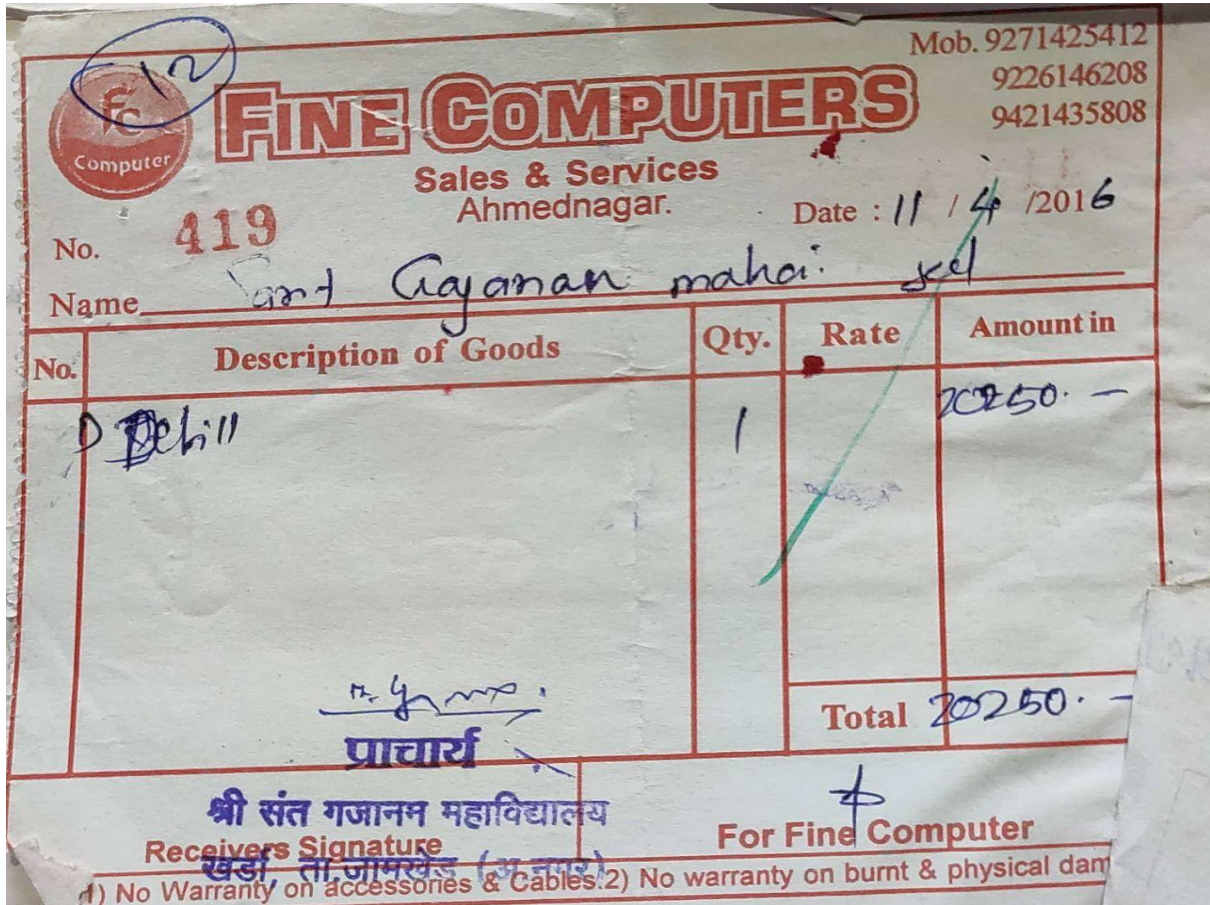 12
Mob. 9271425412
9226146208
9421435808
FC
Computer
FINE COMPUTERS
Sales & Services
Ahmednagar.
No. 419
Date : 11 / 4 /2016
Name Sant Gajanan mahai.
No. Description of Goods Qty. Rate Amount in
1 20250. -
Total 20250. -
प्राचार्य
श्री संत गजानन महाविद्यालय
खर्डा, ता.जामखेड (अ.नगर)
Receivers Signature
For Fine Computer
1) No Warranty on accessories & Cables.2) No warranty on burnt & physical dam